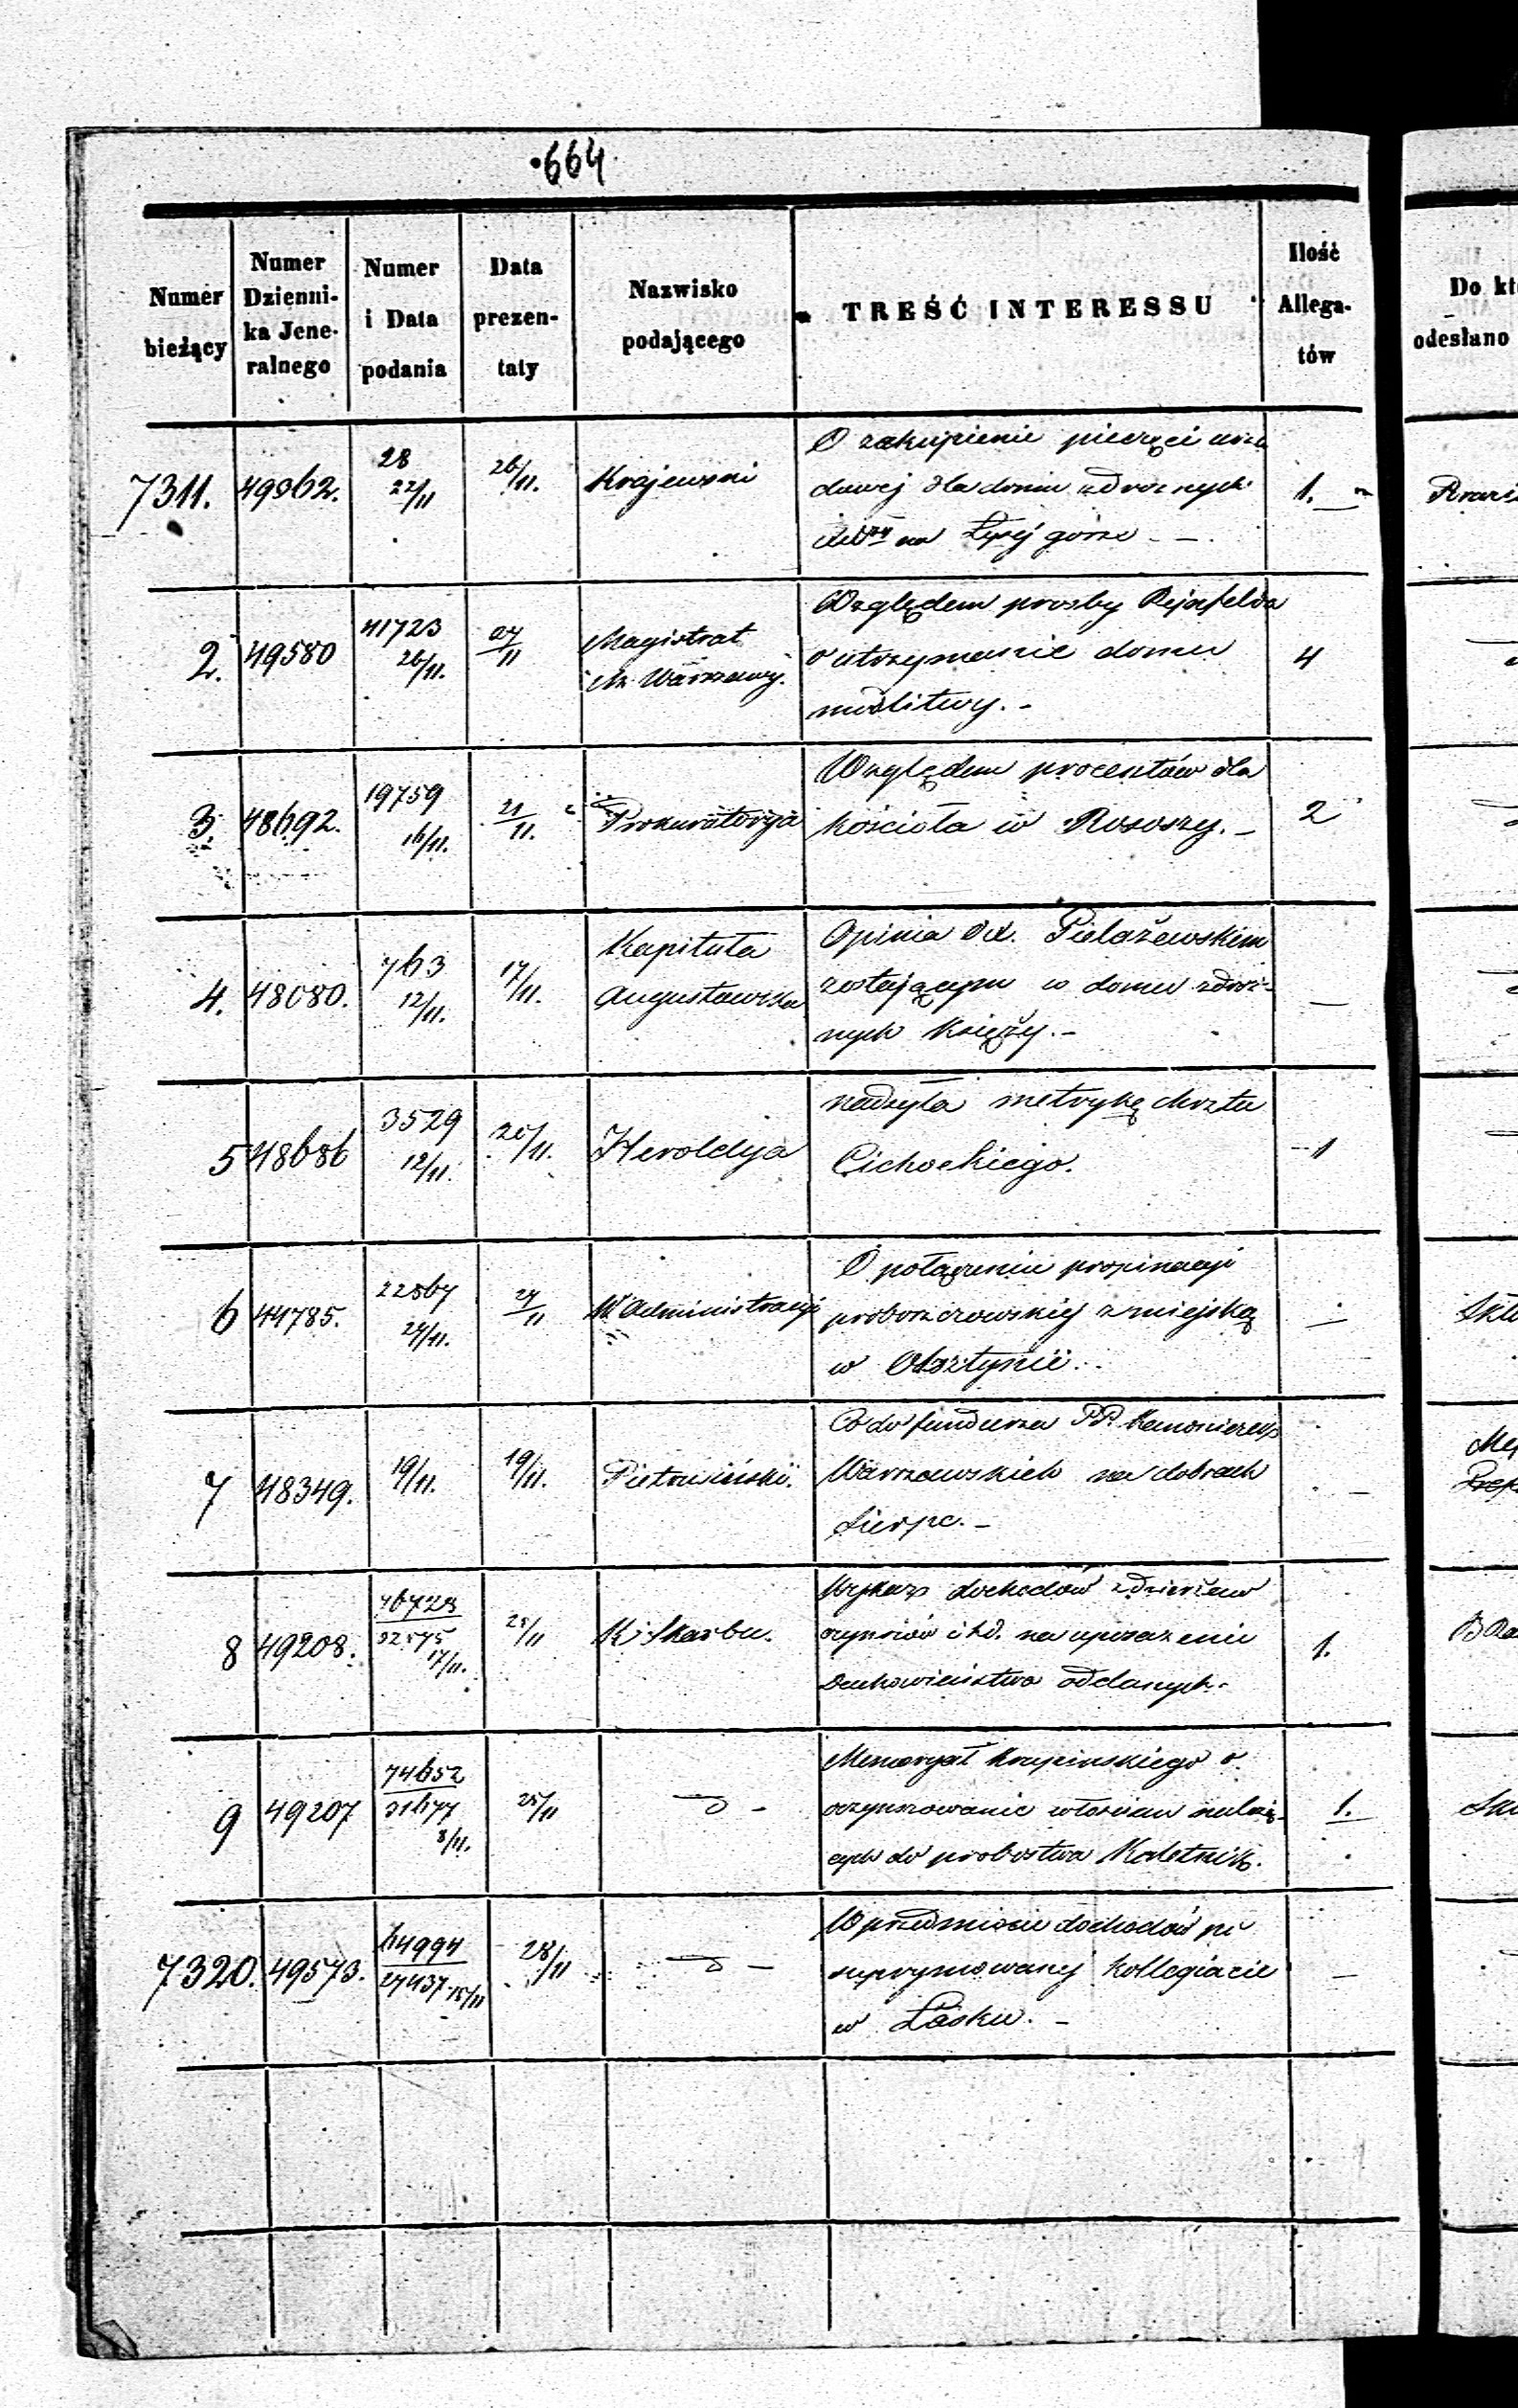 664
Numer bieżący
Numer Dzienni-ka Jene-ralnego
Numer i Data podania
Data prezen-taty
Nazwisko podającego
TREŚĆ INTERESSU
Ilość Allega-tów
Do kt
odesłano
7311. 49362. 28 22/11 26/11. Krajewski O zakupienie pieczęci urzę 1.
dowej dla domu zdrożnych
na Łysej górze
2. 49580 41723 26/11. 27/11 Magistrat M. Warszawy. Względem prośby Rejnfelda 4
o utrzymanie domu
modlitwy.
3. 48692. 19759 16/11. 21/11. Prokuratorya Względem procentów dla 2
kościoła w Rososzy.
4. 48080. 763 12/11. 17/11. Kapituła Augustowska Opinia o X. Pielażewskim —
zostającym w domu zdroż-
nych księży.
5 48686 3529 12/11. 20/11. Heroldya nadsyła metrykę chrztu 1
Cichockiego.
6 44785. 22567 24/11. 27/11 W. Administracyi O połączeniu propinacyi —
proboszczowskiej z miejską
w Olsztynie.
7 48349. 19/11. 19/11. Co do funduszu PP. Kanoniczek —
Warszawskich na dobrach
Sierpc.
8 49208. 76723 32575 17/11. 25/11 K. Skarbu. Wykaz dochodów z dzierżaw 1.
czynszów itd. na uposażenie
Duchowieństwa oddanych.
9 49207 74652 31677 8/11. 25/11 d Memoryał Krupinskiego o 1.
oczynszowanie włościan należą-
cych do probostwa Kaletnik.
7320. 49573. 64994 27437 15/11 28/11 d W przedmiocie dochodów po —
suprymowanej kollegiacie
w Łasku.